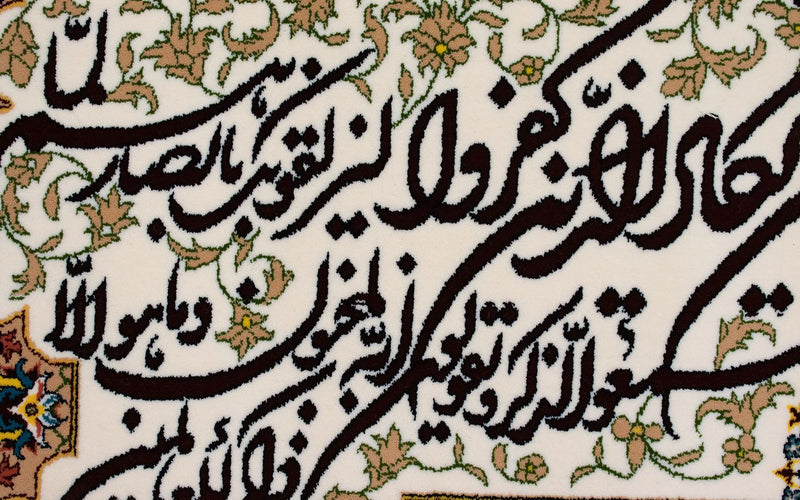 يكاد الذين كفروا ليزلقونك بابصارهم لما
سمعوا الذكر و يقولون انه لمجنون و ما هو الا